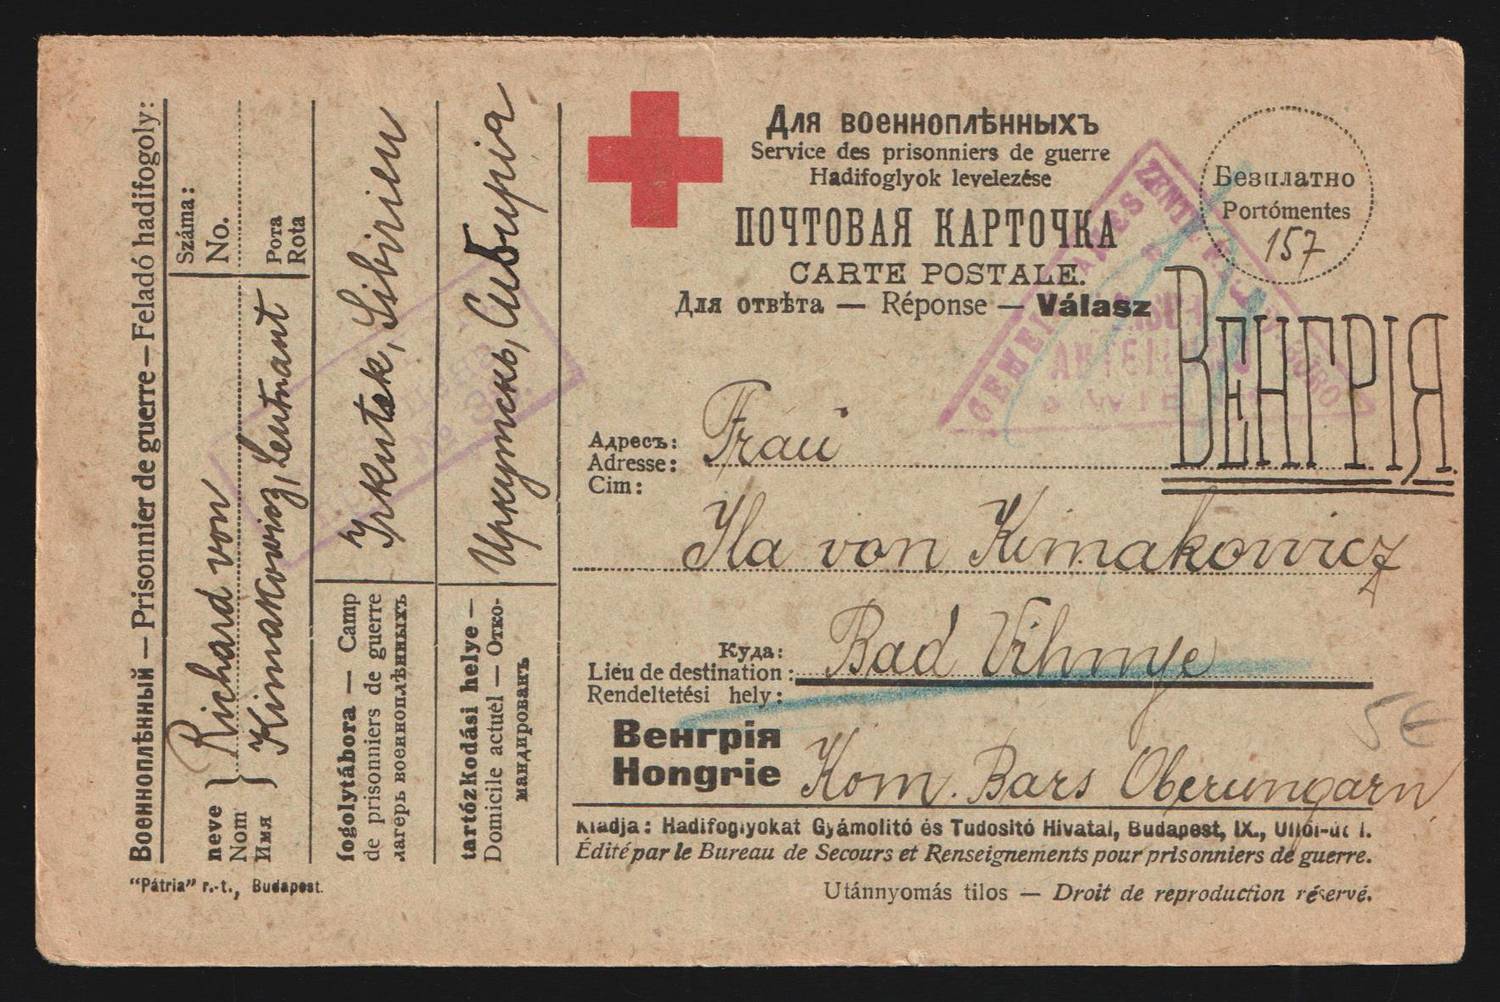 Военноплѣнный — Prisonnier de guerre — Feladó hadifogoly:
Száma:
No.
Рота
Rota
neve
Nom
Имя
Richard von
Kimakowicz, Leutnant
fogolytábora — Camp
de prisonniers de guerre
лагерь военноплѣнныхъ
Irkutsk, Sibirien
tartózkodási helye —
Domicile actuel — Отко-
мандированъ
Иркутскъ, Сибирія
"Pátria" r.-t., Budapest.
Для военноплѣнныхъ
Service des prisonniers de guerre
Hadifoglyok levelezése
ПОЧТОВАЯ КАРТОЧКА
CARTE POSTALE.
Для отвѣта — Réponse — Válasz
Безплатно
Portómentes
157
ВЕНГРІЯ.
Адресъ:
Adresse:
Cim:
Frau
Ila von Kimakowicz
Куда:
Liéu de destination:
Rendeltetési hely:
Bad Vihnye
Венгрія
Hongrie
Kom. Bars Oberungarn
5€
Kiadja: Hadifoglyokat Gyámolitó és Tudositó Hivatal, Budapest, IX., Üllői-út 1.
Édité par le Bureau de Secours et Renseignements pour prisonniers de guerre.
Utánnyomás tilos — Droit de reproduction réservé.